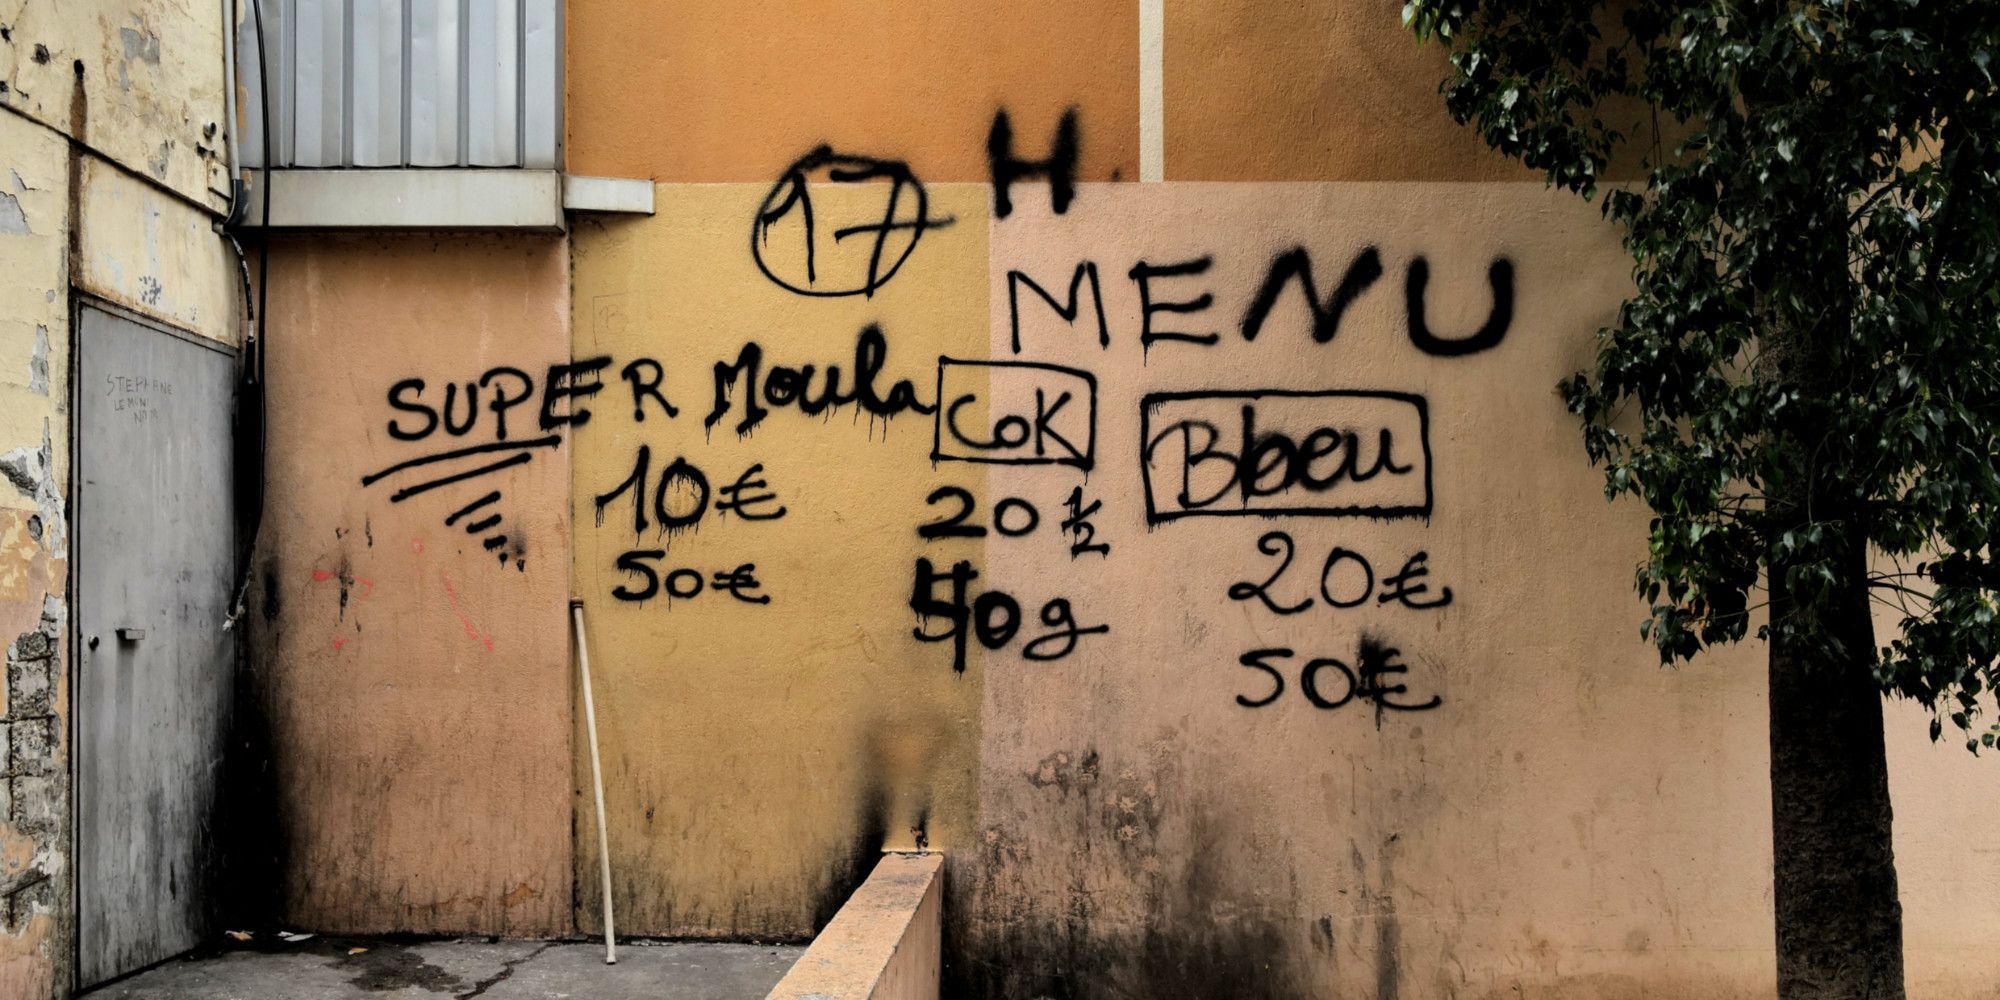 17 H
MENU
SUPER Moula
10€
50€
CoK
20 ½
40g
Bbeu
20€
50€
STEPHANE
LE MINI